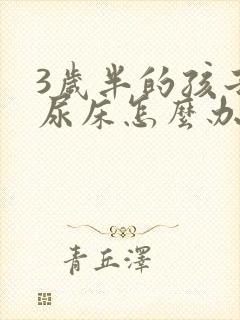 3歲半的孩子
尿床怎麼办
青丘澤